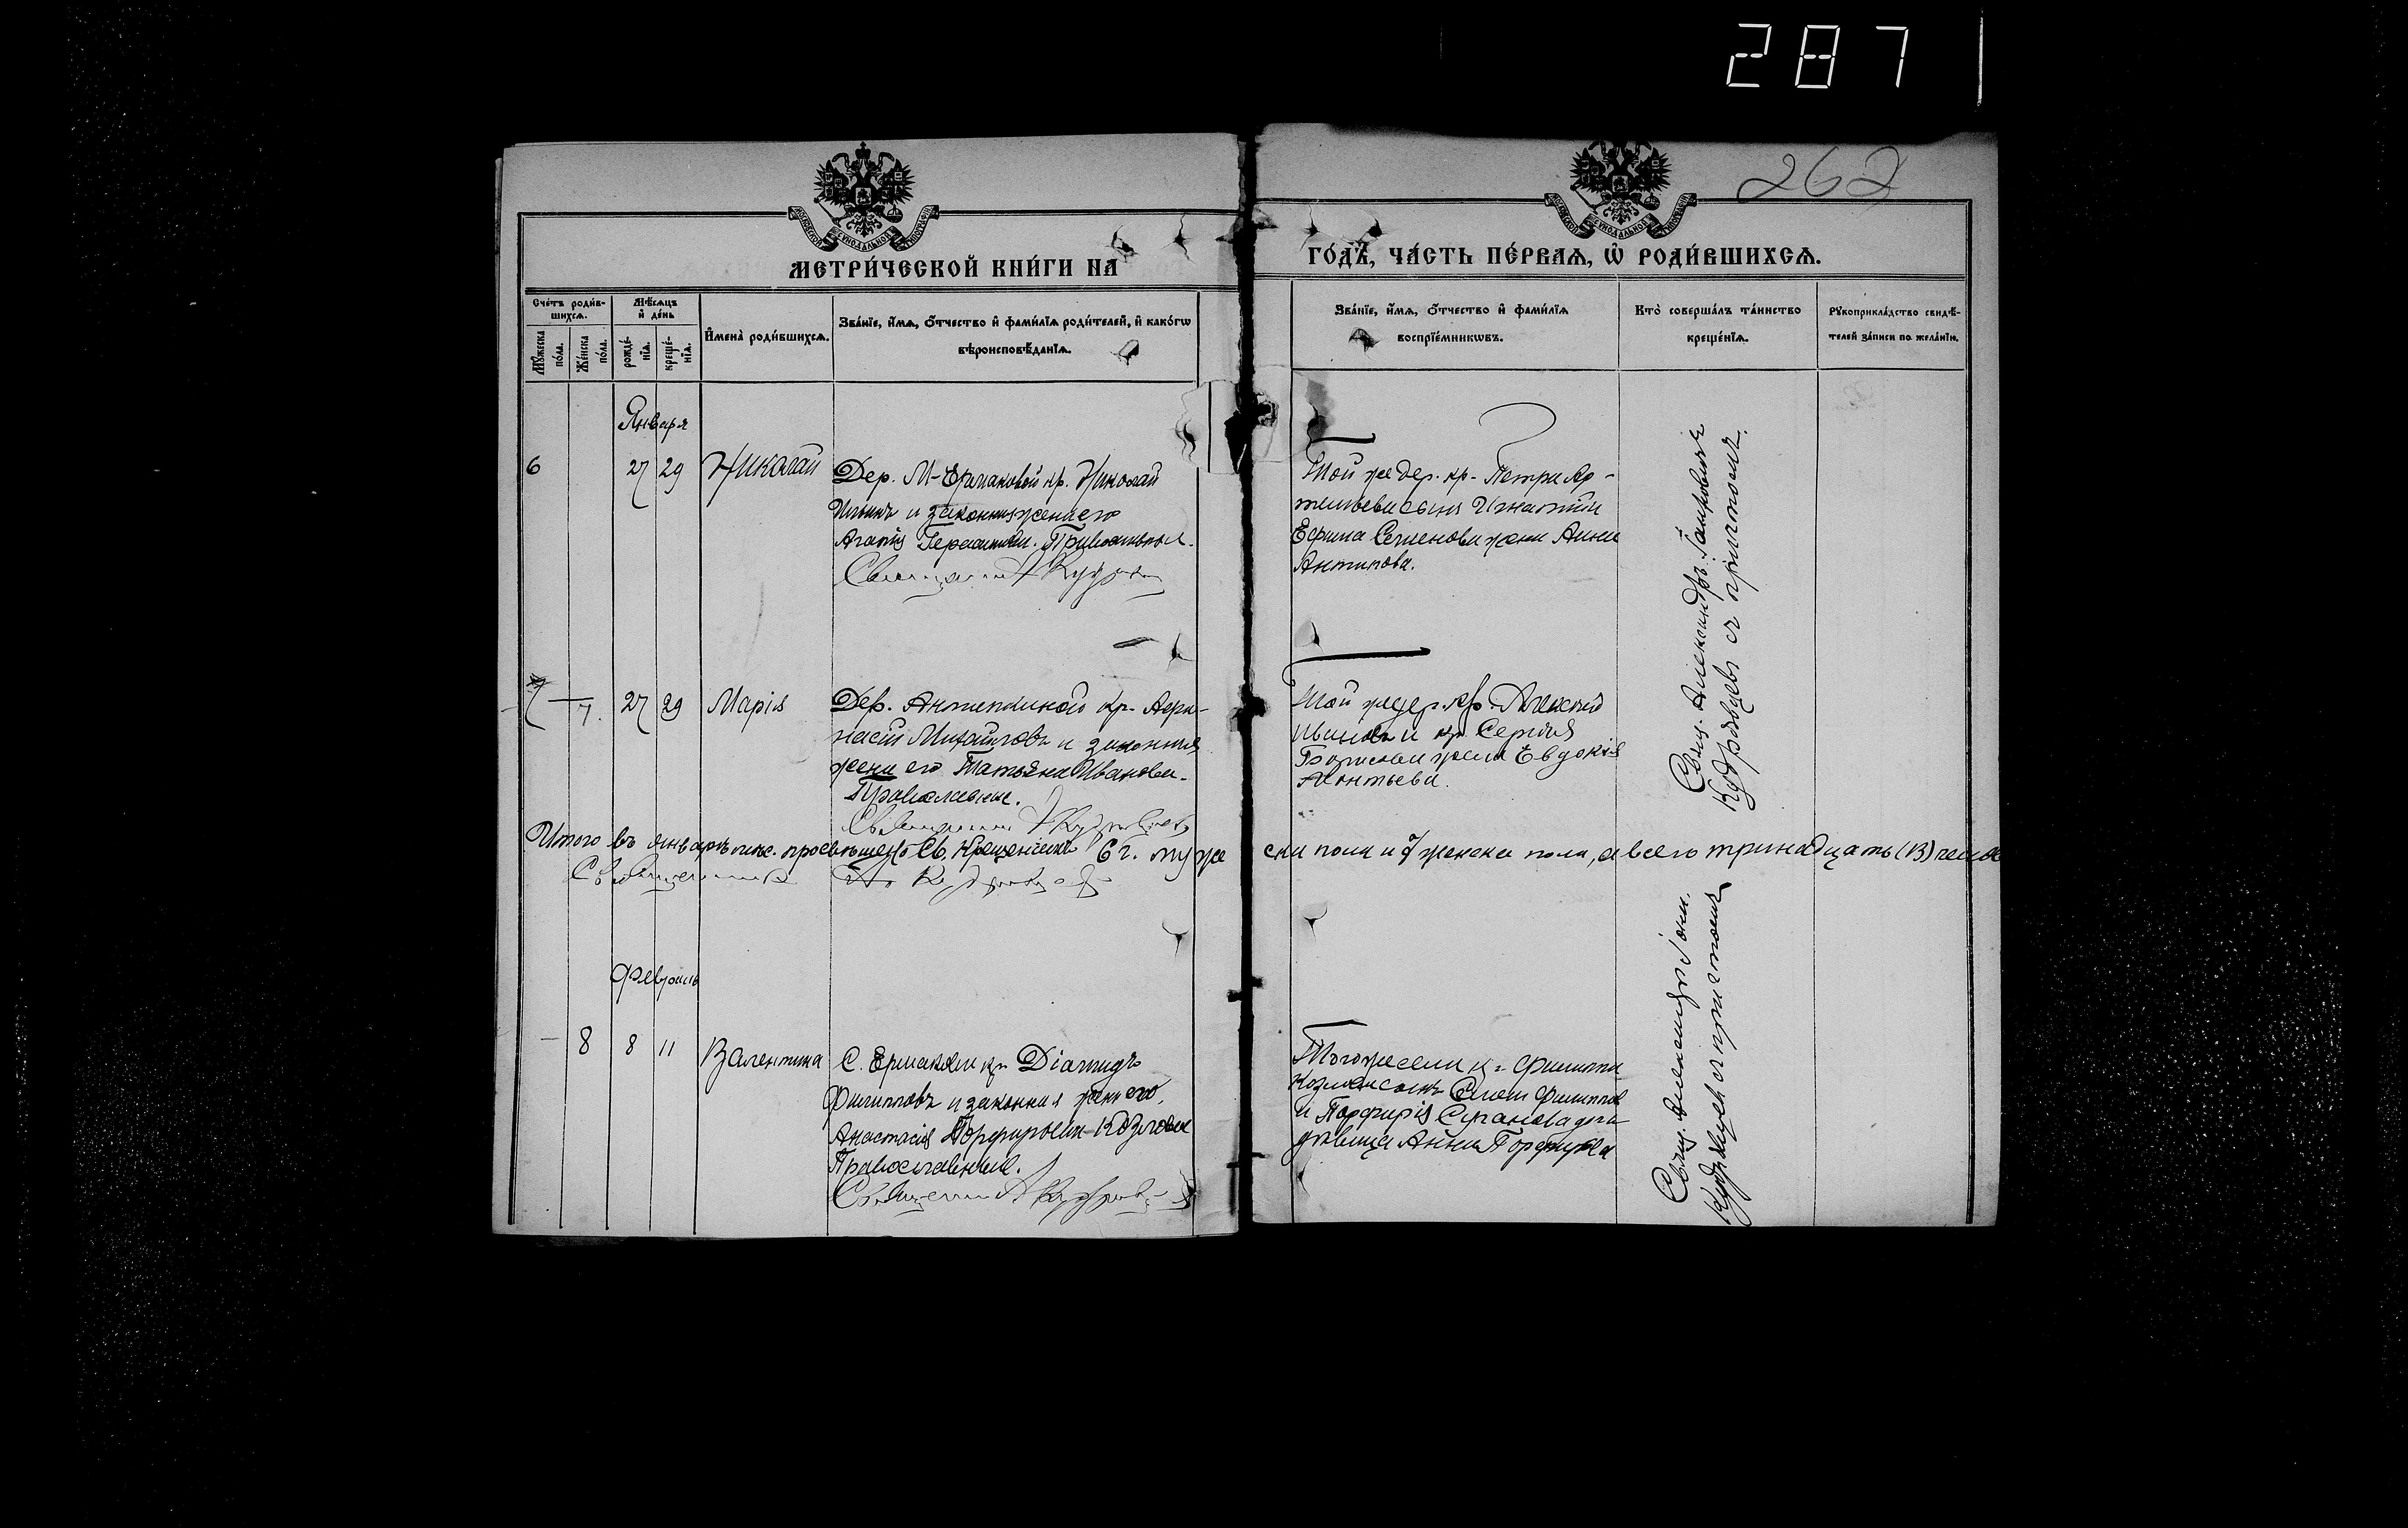 287
262
МЕТРИ́ЧЕСКОЙ КНИ́ГИ НА
ГО́ДЪ, ЧА́СТЬ ПЕ́РВАѦ, Ѡ҆ РОДИ́ВШИХСѦ.
Сче́тъ роди́в-
шихсѧ.
Мѣ́сѧцъ
и҆ де́нь
Мꙋ́жеска
по́ла.
Же́нска
по́ла.
рожде́-
нїѧ.
креще́-
нїѧ.
И҆мена̀ роди́вшихсѧ.
Зва́нїе, и҆́мѧ, ѻ҆́тчество и҆ фами́лїѧ роди́телей, и҆ како́гѡ
вѣроисповѣ́данїѧ.
Зва́нїе, и҆́мѧ, ѻ҆́тчество и҆ фами́лїѧ
воспрїе́мникѡвъ.
Кто̀ соверша́лъ та́инство
креще́нїѧ.
Рꙋкоприкла́дство свидѣ́-
телей за́писи по жела́нїю.
Января
6 27 29 Николай
Дер. М-Ермаковой кр. Николай
и законная жена его
Агапія
Той же дер. кр. Петра Ар-
темьева сынъ Игнатій
Ефима Семенова жена Анна
Антипова.
Свящ. Александръ
Кудрявцевъ съ причтомъ.
7. 27 29 Марія
Дер. кр. Афа-
насій Михайловъ и законная
жена его Татьяна Иванова.
Православные.
Священникъ А Кудрявцевъ
Той же дер. кр. Алексей
Ивановъ и кр. Сергія
жена Евдокія
Леонтьева.
Итого въ январѣ мѣс. просвѣщено Св. Крещеніемъ 6 ч. муже
ска пола и 7 женска пола, а всего тринадцать (13) челов
Священникъ Кудрявцевъ
Февраль
— 8 8 11 Валентина
С. Ермаковъ кр. Діамидъ
Филипповъ и законная жена его,
Анастасія Порфирьева Козловы
Православные.
Священникъ А Кудрявцевъ
Того же села кр. Филиппа
Козлова сынъ Филиппов
и Порфирія Степанова дочь
дѣвица Анна Порфирьева
Свящ. Александръ
Кудрявцевъ съ причтомъ